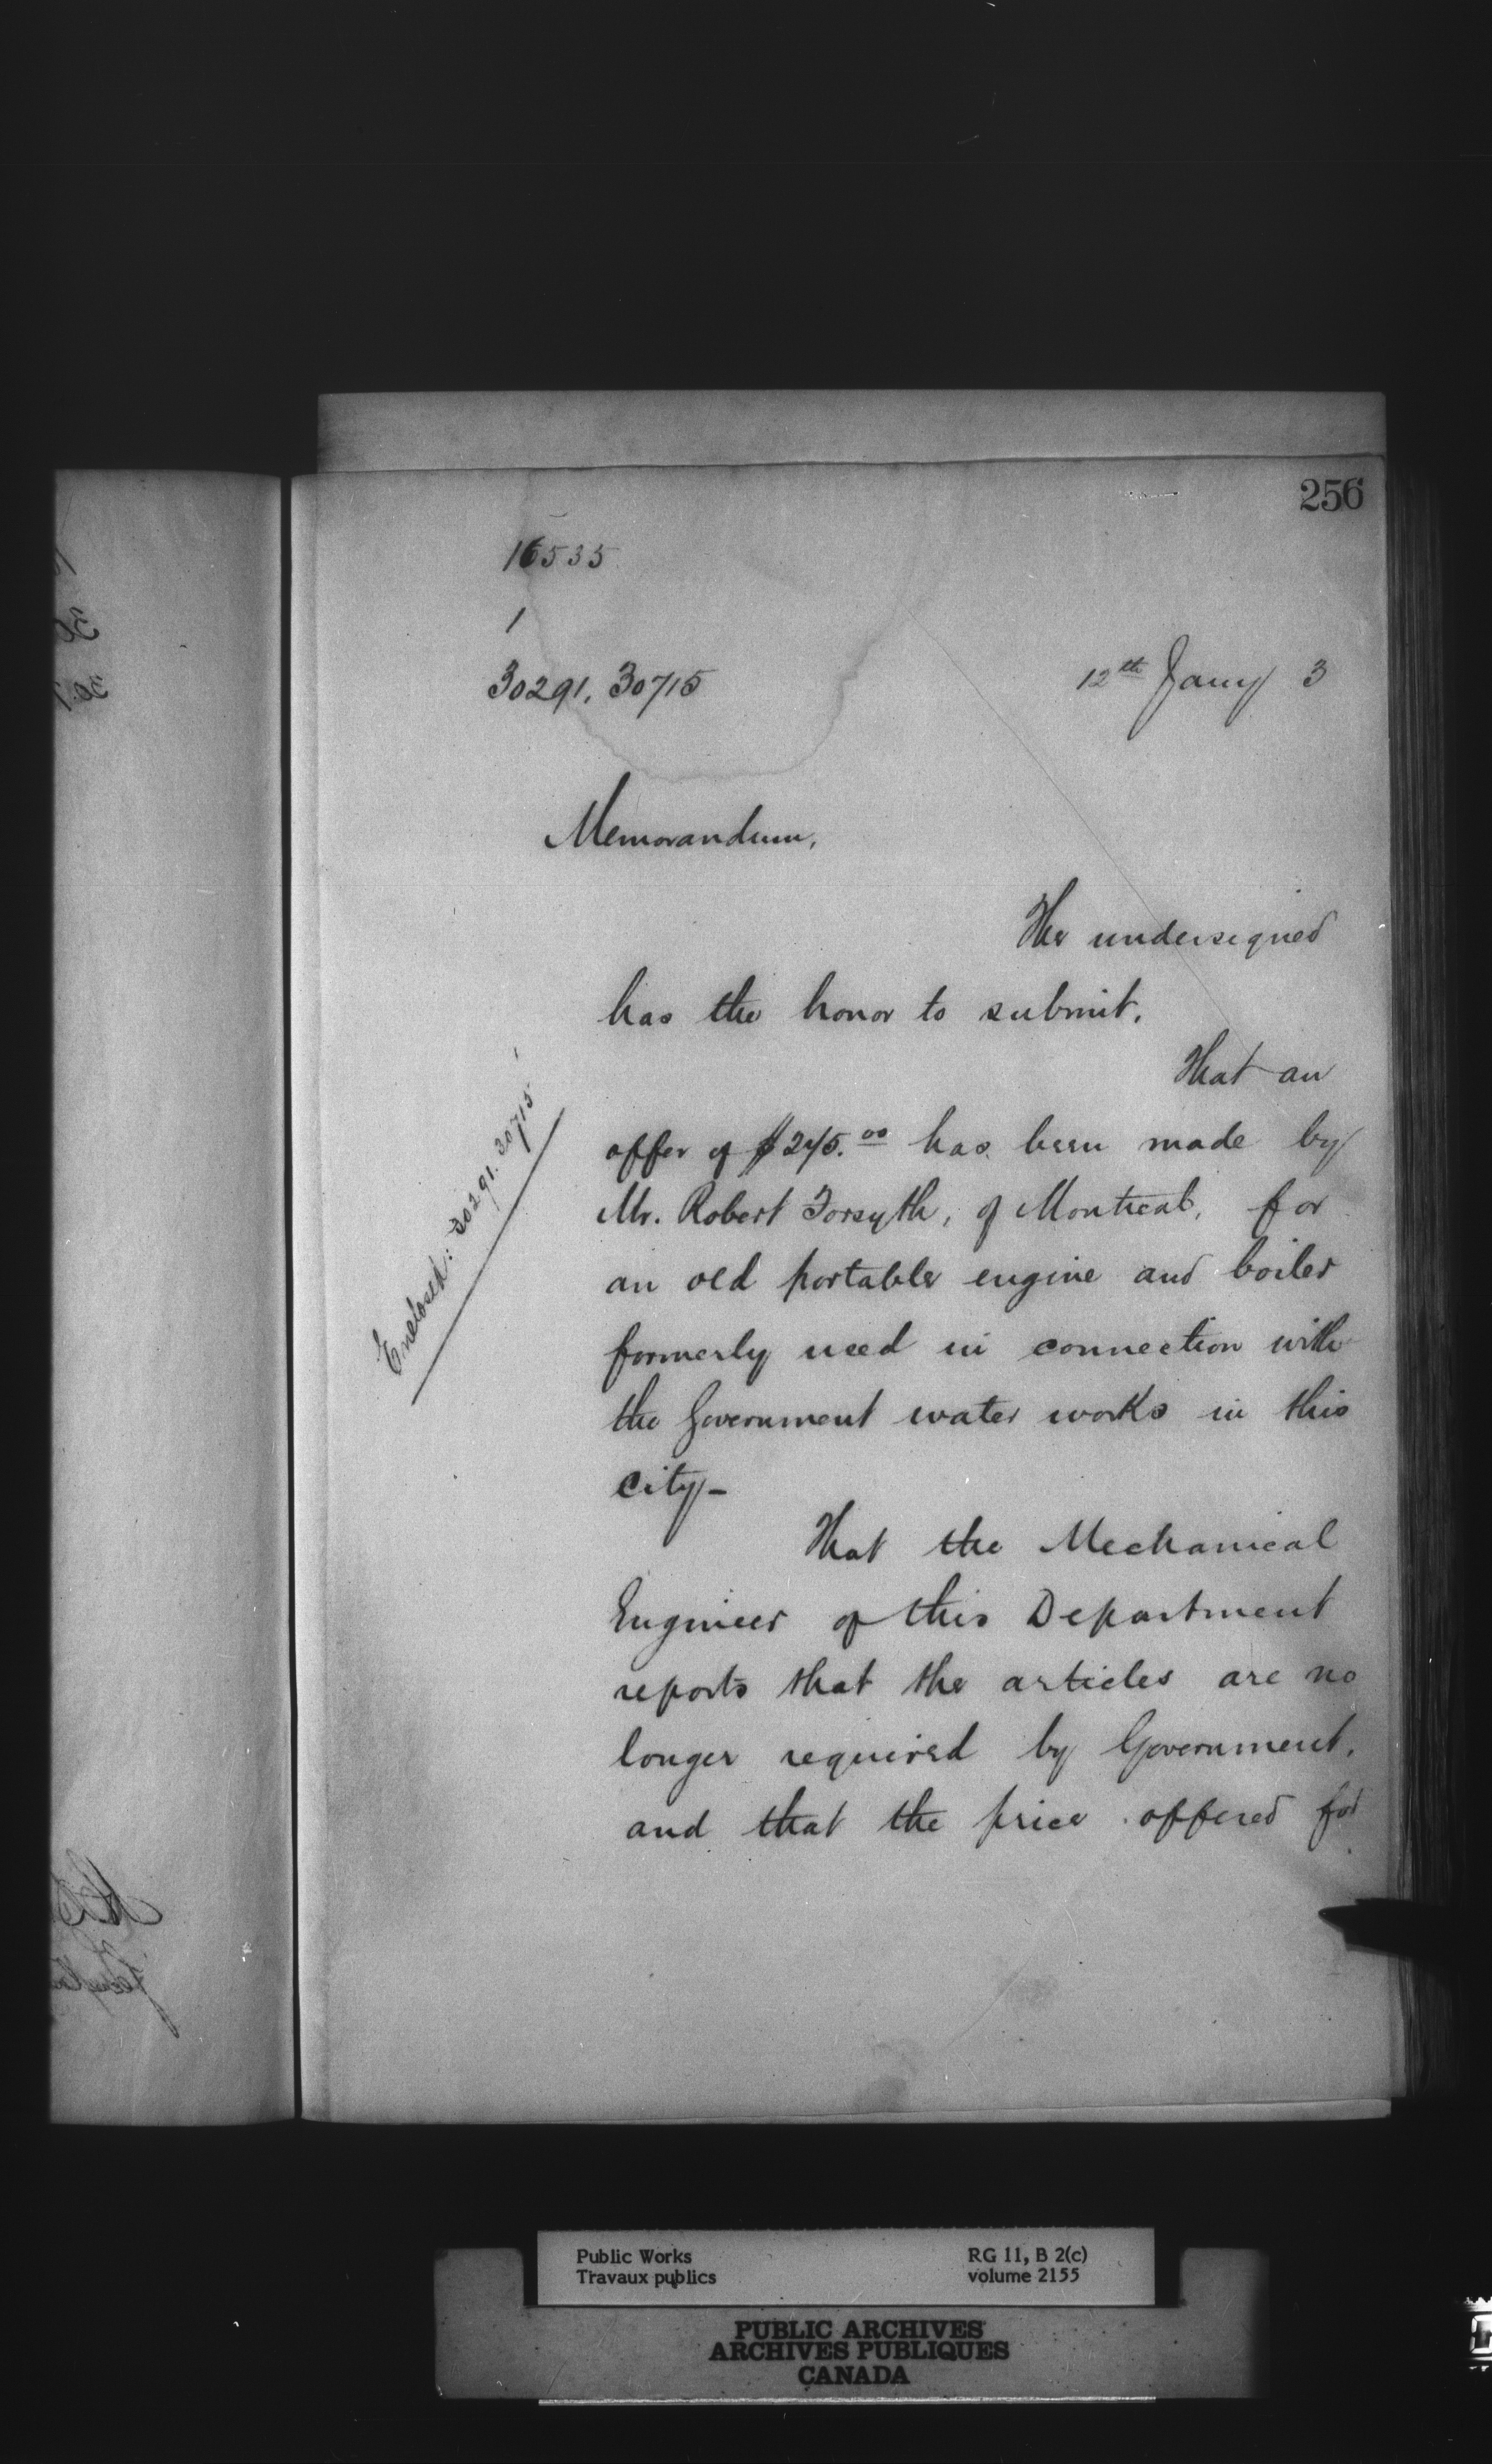 256
16535
1
30291, 30715
12th Jany 3
Memorandum,
The undersigned
has the honor to submit.
That an
offer of $245.00 has been made by
Mr. Robert Forsyth, of Montreal, for
an old portable engine and boiler
formerly used in connection with
the Government water works in this
city-
That the Mechanical
Engineer of this Department
reports that the articles are no
longer required by Government,
and that the price offered for
Enclosed: 30291. 30715
Public Works
Travaux publics
RG 11, B 2(c)
volume 2155
PUBLIC ARCHIVES
ARCHIVES PUBLIQUES
CANADA